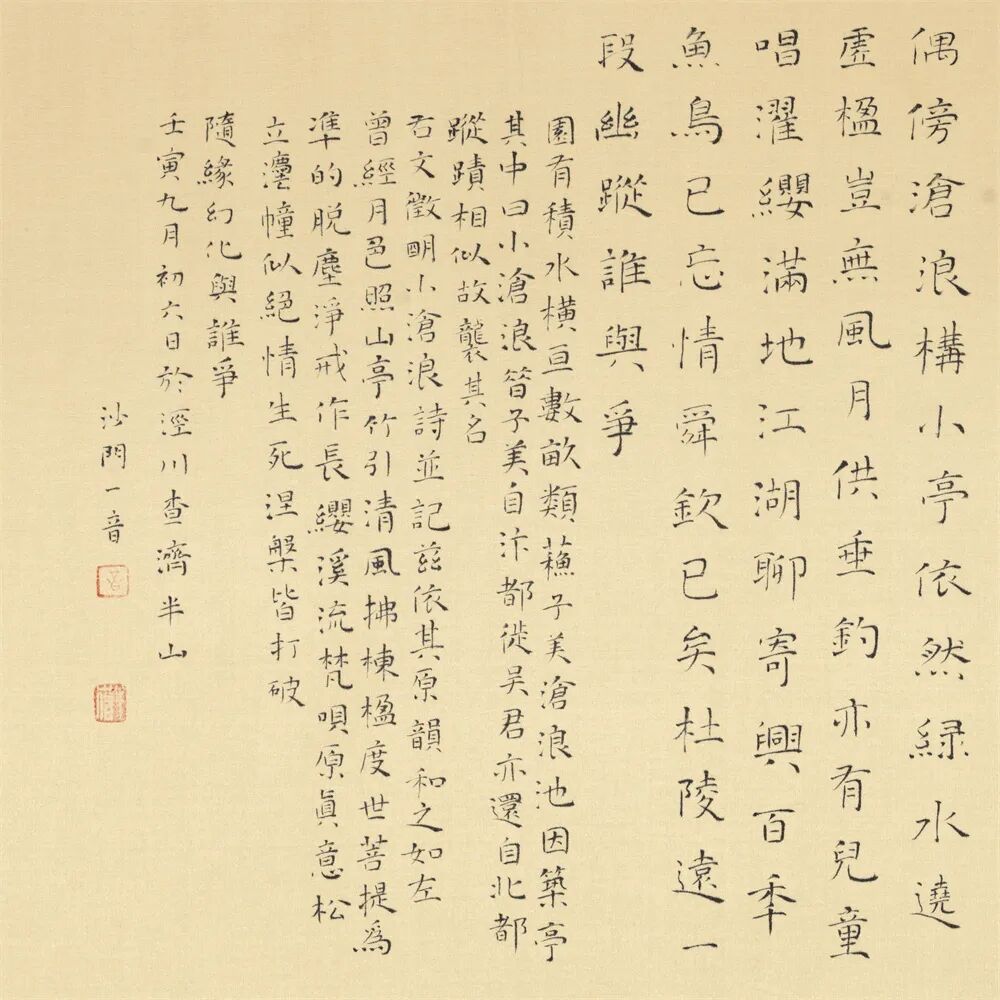 偶傍滄浪構小亭依然緑水遶
虛楹豈無風月供垂釣亦有兒童
唱濯纓滿地江湖聊寄興百季
魚鳥已忘情舜欽已矣杜陵遠一
段幽蹤誰與爭
園有積水橫亘數畝類蘓子美滄浪池因築亭
其中曰小滄浪昝子美自汴都徙吴君亦還自北都
蹤蹟相似故襲其名
右文徵明小滄浪詩並記茲依其原韻和之如左
曾經月色照山亭竹引清風拂棟楹度世菩提爲
準的脱塵淨戒作長纓溪流梵唄原眞意松
立灋幢似絕情生死涅槃皆打破
隨緣幻化與誰爭
壬寅九月初六日於涇川查濟半山
沙門一音